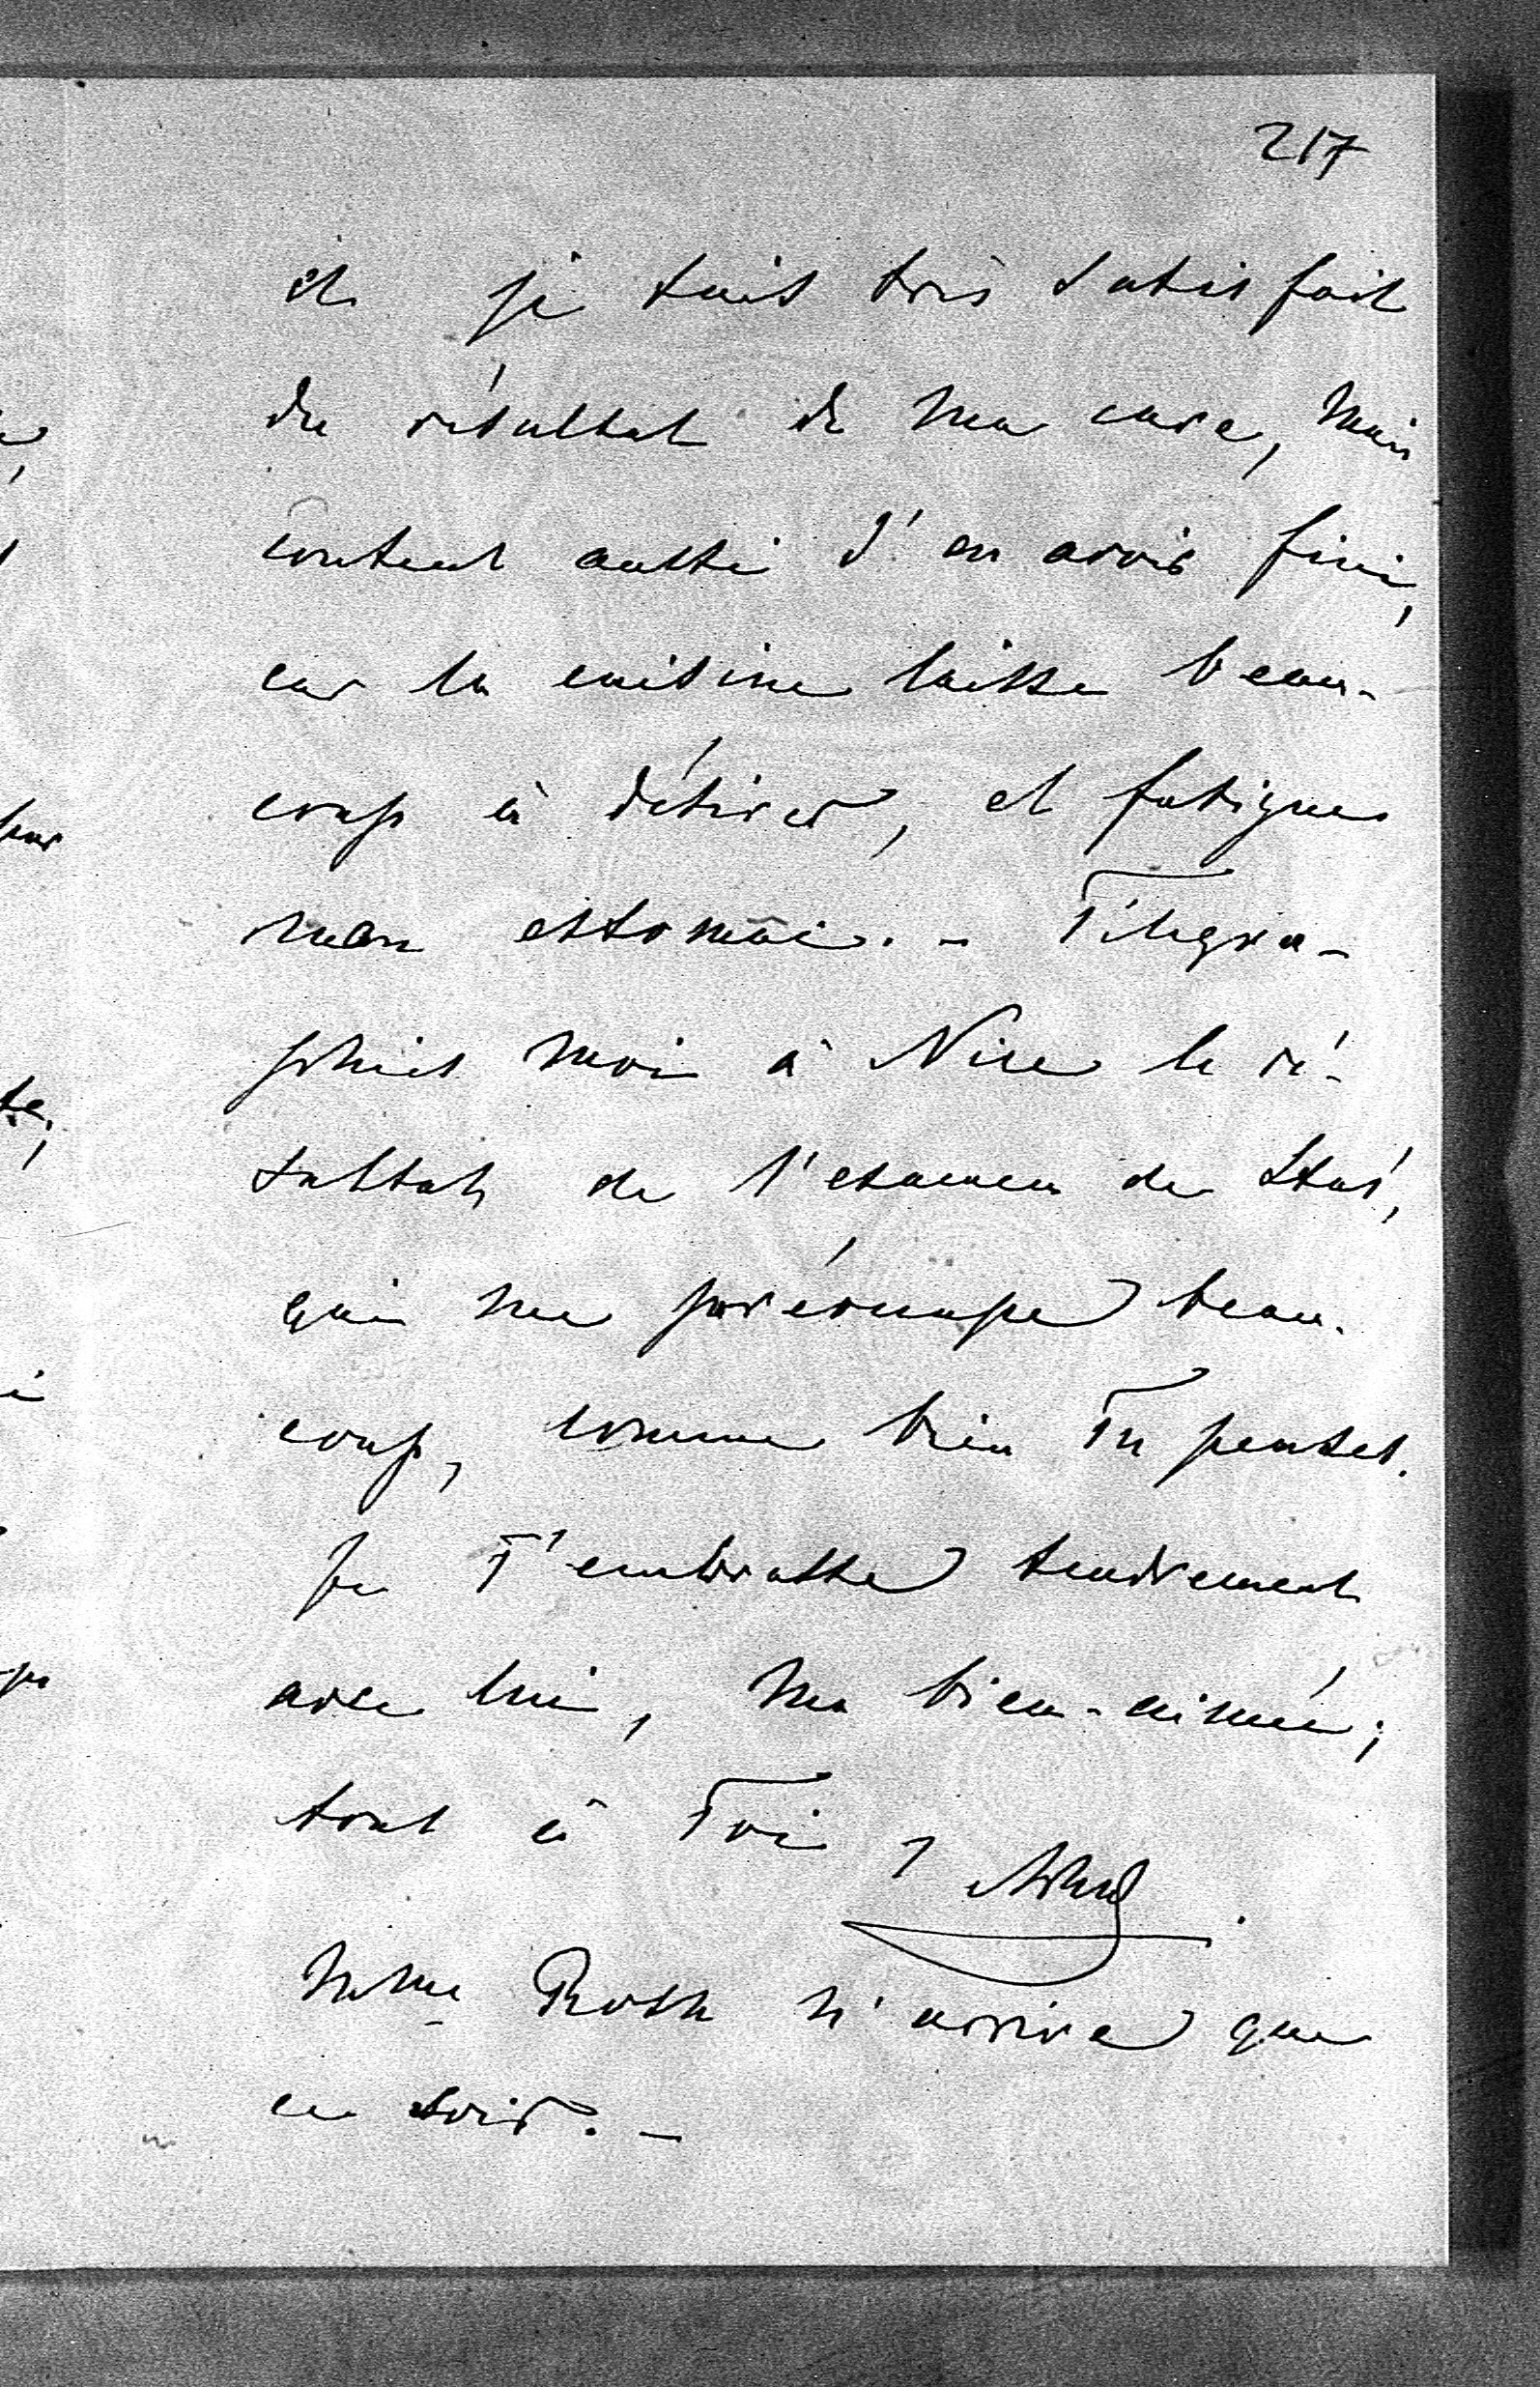 217
et je suis très satisfait
du résultat de ma cure, mais
content aussi d'en avoir fini,
car la cuisine laisse beau-
coup à désirer, et fatigue
mon estomac. - Télégra-
phies moi à Nice le ré-
sultat de l'examen de Stas,
qui me préoccupe beau-
coup, comme bien Tu penses.
Je T'embrasse tendrement
avec lui, ma bien-aimée;
tout à Toi,
Mme Roth n'arrive que
ce soir. -